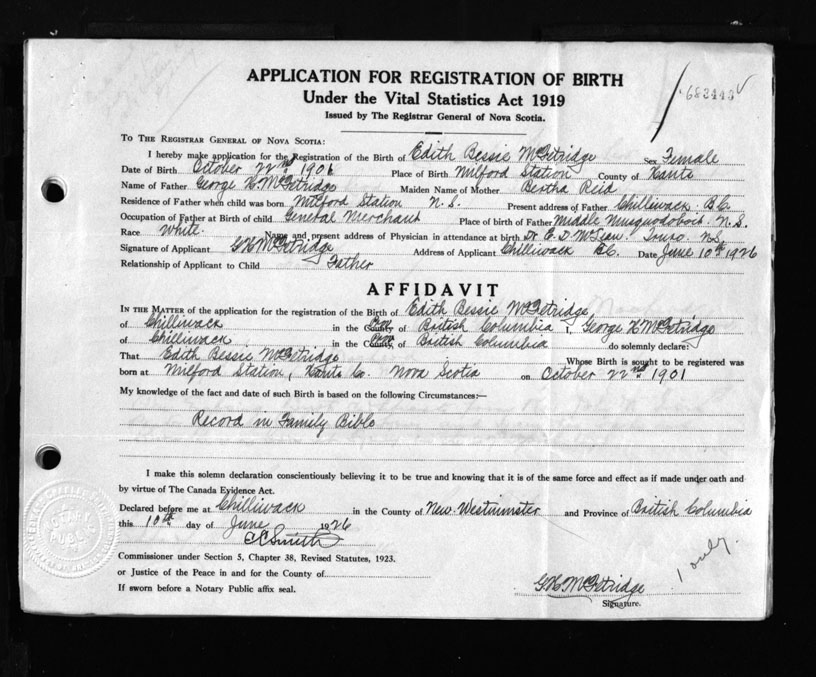 APPLICATION FOR REGISTRATION OF BIRTH
Under the Vital Statistics Act 1919
Issued by The Registrar General of Nova Scotia.
683443
TO THE REGISTRAR GENERAL OF NOVA SCOTIA:
I hereby make application for the Registration of the Birth of Edith Bessie McFetridge Sex Female
Date of Birth October 22nd 1901 Place of Birth Milford Station County of Hants
Name of Father George H. McFetridge Maiden Name of Mother Bertha Reid
Residence of Father when child was born Milford Station N. S. Present address of Father Chilliwack B.C.
Occupation of Father at Birth of child General Merchant Place of birth of Father Middle Musquodoboit N. S.
Race White Name and present address of Physician in attendance at birth Dr. E. D. McLean. Truro. N.S.
Signature of Applicant G H McFetridge Address of Applicant Chilliwack B.C. Date June 10th 1926
Relationship of Applicant to Child Father
AFFIDAVIT
IN THE MATTER of the application for the registration of the Birth of Edith Bessie McFetridge
of Chilliwack in the County Prov of British Columbia I, George H McFetridge
of Chilliwack in the County Prov of British Columbia do solemnly declare:
That Edith Bessie McFetridge Whose Birth is sought to be registered was
born at Milford Station, Hants Co. Nova Scotia on October 22nd 1901
My knowledge of the fact and date of such Birth is based on the following Circumstances:—
Record in Family Bible
I make this solemn declaration conscientiously believing it to be true and knowing that it is of the same force and effect as if made under oath and
by virtue of The Canada Evidence Act.
Declared before me at Chilliwack in the County of New Westminster and Province of British Columbia
this 10th day of June 1926
Commissioner under Section 5, Chapter 38, Revised Statutes, 1923.
or Justice of the Peace in and for the County of
If sworn before a Notary Public affix seal.
1 only.
G H McFetridge
Signature.